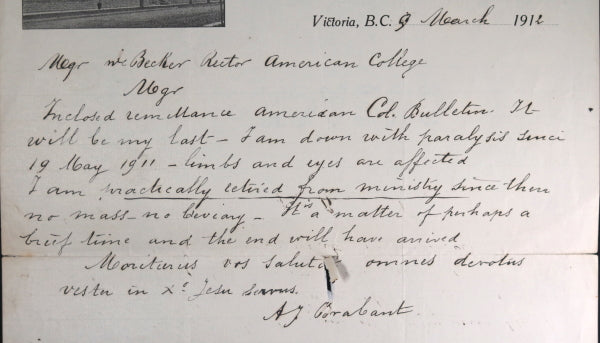 Victoria, B.C. 9 March 1912
Mgr de Becker Rector American College
Mgr
Inclosed remittance american Col. Bulletin. It
will be my last – I am down with paralysis since
19 May 1911 – limbs and eyes are affected
I am practically retired from ministry since then
no mass – no breviary – It is a matter of perhaps a
brief time and the end will have arrived
Moriturus vos salutat omnes devotus
vester in Xº Jesu servus.
A J Brabant.